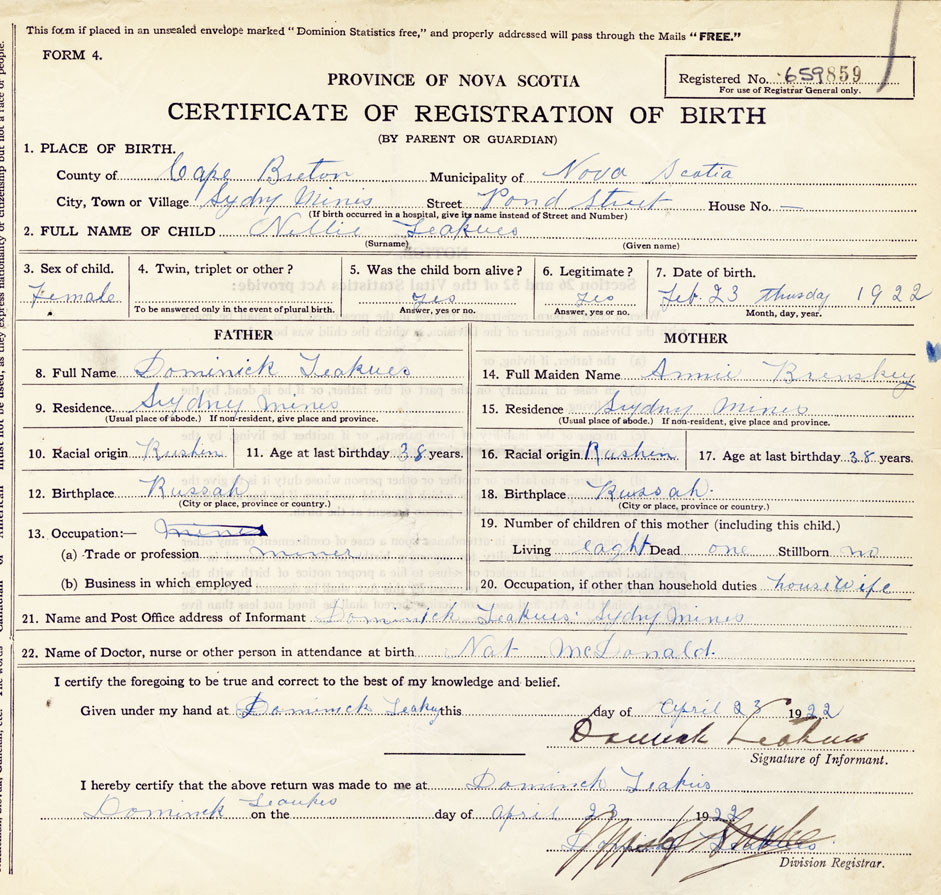 This form if placed in an unsealed envelope marked "Dominion Statistics free," and properly addressed will pass through the Mails "FREE."
FORM 4.
Registered No. 659859
For use of Registrar General only.
PROVINCE OF NOVA SCOTIA
CERTIFICATE OF REGISTRATION OF BIRTH
(BY PARENT OR GUARDIAN)
1. PLACE OF BIRTH.
County of Cape Breton Municipality of Nova Scotia
City, Town or Village Sydny Mines Street Pond Street House No. —
(If birth occurred in a hospital, give its name instead of Street and Number)
2. FULL NAME OF CHILD Nellie Leakues
(Surname) (Given name)
3. Sex of child. 4. Twin, triplet or other? 5. Was the child born alive? 6. Legitimate? 7. Date of birth.
Female yes yes Feb. 23 Thursday 1922
To be answered only in the event of plural birth. Answer, yes or no. Answer, yes or no. Month, day, year.
FATHER
8. Full Name Dominick Leakues
9. Residence Sydny Mines
(Usual place of abode.) If non-resident, give place and province.
10. Racial origin Rushin 11. Age at last birthday 38 years.
12. Birthplace Russah
(City or place, province or country.)
13. Occupation:—
(a) Trade or profession miner
(b) Business in which employed
MOTHER
14. Full Maiden Name Annie Brenskey
15. Residence Sydny Mines
(Usual place of abode.) If non-resident, give place and province.
16. Racial origin Rushin 17. Age at last birthday 38 years.
18. Birthplace Russah.
(City or place, province or country.)
19. Number of children of this mother (including this child.)
Living eaght Dead one Stillborn no
20. Occupation, if other than household duties housewife
21. Name and Post Office address of Informant Dominick Leakues Sydny Mines
22. Name of Doctor, nurse or other person in attendance at birth Nat McDonald.
I certify the foregoing to be true and correct to the best of my knowledge and belief.
Given under my hand at Dominick Leaky this day of April 23 1922
Dominick Leakues
Signature of Informant.
I hereby certify that the above return was made to me at Dominck Leakus
Dominck Leaukes on the day of April 23 1922
Division Registrar.